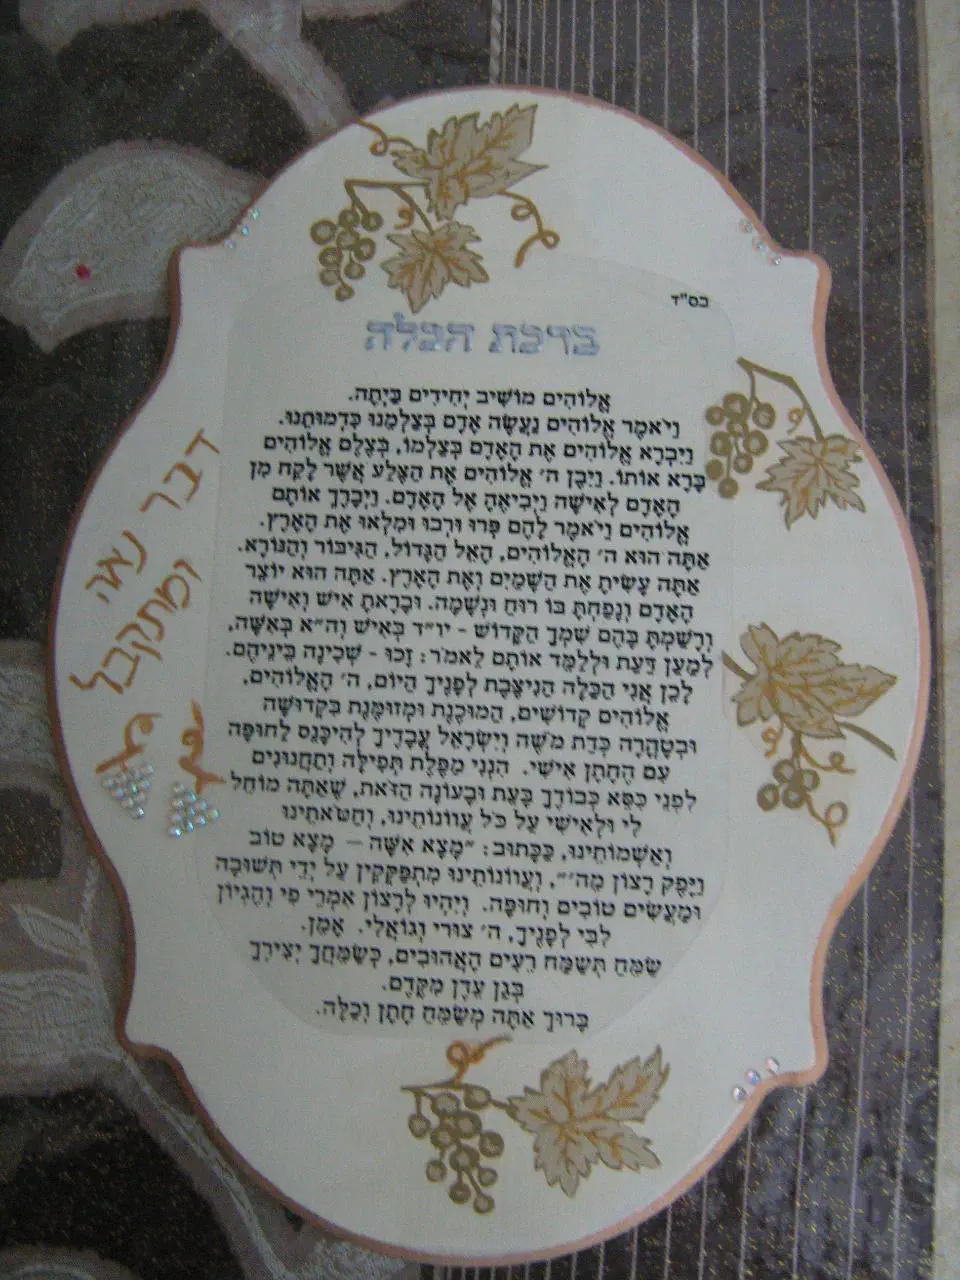 בס"ד
ברכת הכלה
אֱלוֹהִים מוֹשִׁיב יְחִידִים בַּיְתָה.
וַיֹּאמֶר אֱלוֹהִים נַעֲשֶׂה אָדָם בְּצַלְמֵנוּ כִּדְמוּתֵנוּ.
וַיִּבְרָא אֱלוֹהִים אֶת הָאָדָם בְּצַלְמוֹ, בְּצֶלֶם אֱלוֹהִים
בָּרָא אוֹתוֹ. וַיִּבֶן ה' אֱלוֹהִים אֶת הַצֵּלָע אֲשֶׁר לָקַח מִן
הָאָדָם לְאִישָּׁה וַיְבִיאֶהָ אֶל הָאָדָם. וַיְבָרֶךְ אוֹתָם
אֱלוֹהִים וַיֹּאמֶר לָהֶם פְּרוּ וּרְבוּ וּמִלְאוּ אֶת הָאָרֶץ.
אַתָּה הוּא ה' הָאֱלוֹהִים, הָאֵל הַגָּדוֹל, הַגִּיבּוֹר וְהַנּוֹרָא.
אַתָּה עָשִׂיתָ אֶת הַשָּׁמַיִם וְאֶת הָאָרֶץ. אַתָּה הוּא יוֹצֵר
הָאָדָם וְנָפַחְתָּ בּוֹ רוּחַ וּנְשָׁמָה. וּבָרָאתָ אִישׁ וְאִישָּׁה
וְרָשַׁמְתָּ בָּהֶם שִׁמְךָ הַקָּדוֹשׁ - יו"ד בְּאִישׁ וְה"א בְּאִשָּׁה,
לְמַעַן דַּעַת וּלְלַמֵּד אוֹתָם לֵאמֹר: זָכוּ - שְׁכִינָה בֵּינֵיהֶם.
לָכֵן אֲנִי הַכַּלָּה הַנִּיצֶּבֶת לְפָנֶיךָ הַיּוֹם, ה' הָאֱלוֹהִים,
אֱלוֹהִים קְדוֹשִׁים, הַמּוּכֶנֶת וּמְזוּמֶּנֶת בִּקְדוּשָּׁה
וּבְטָהֳרָה כְּדַת מֹשֶׁה וְיִשְׂרָאֵל עֲבָדֶיךָ לְהִיכָּנֵס לַחוּפָּה
עִם הֶחָתָן אִישִׁי. הִנְנִי מַפֶּלֶת תְּפִילָּה וְתַחֲנוּנִים
לִפְנֵי כִּסֵּא כְּבוֹדֶךָ בָּעֵת וּבָעוֹנָה הַזֹּאת, שֶׁאַתָּה מוֹחֵל
לִי וּלְאִישִׁי עַל כֹּל עֲווֹנוֹתֵינוּ, וְחַטֹּאתֵינוּ
וְאַשְׁמוֹתֵינוּ, כַּכָּתוּב: "מָצָא אִשָּׁה – מָצָא טוֹב
וַיָּפֶק רָצוֹן מֵה'", וַעֲווֹנוֹתֵינוּ מִתְפַּקְּקִין עַל יְדֵי תְּשׁוּבָה
וּמַעֲשִׂים טוֹבִים וְחוּפָּה. וְיִהְיוּ לְרָצוֹן אִמְרֵי פִי וְהֶגְיוֹן
לִבִּי לְפָנֶיךָ, ה' צוּרִי וְגוֹאֲלִי. אָמֵן.
שַׂמֵּחַ תְּשַׂמַּח רֵעִים הָאֲהוּבִים, כְּשַׂמֵּחֲךָ יְצִירְךָ
בְּגַן עֵדֶן מִקֶּדֶם.
בָּרוּךְ אַתָּה מְשַׂמֵּחַ חָתָן וְכַלָּה.
דבר נאה
ומתקבל